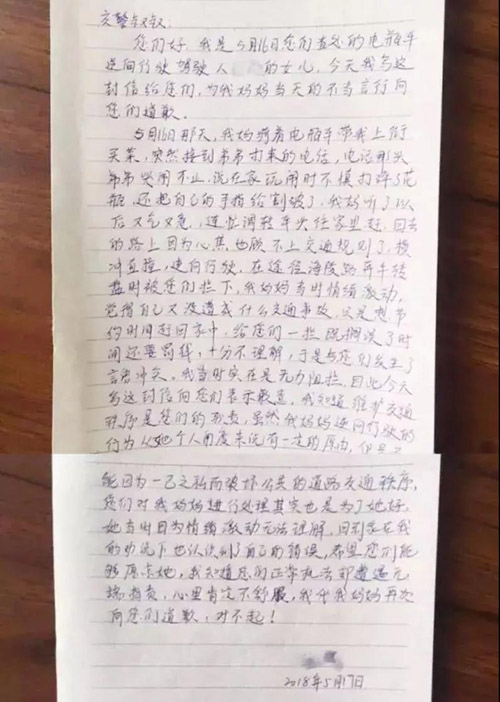 交警叔叔:
您们好,我是5月16日您们查处的电瓶车
逆向行驶驾驶人 的女儿,今天我写这
封信给您们,为我妈妈当天的不当言行向
您们道歉。
5月16日那天,我妈骑着电瓶车带我上街
买菜,突然接到弟弟打来的电话,电话那头
弟弟哭闹不止,说在家玩闹时不慎打碎了花
瓶,还把自己的手指给割破了,我妈听了以
后又气又急,连忙调转车头往家里赶,回去
的路上因为心焦也顾不上交通规则了,横
冲直撞,逆向行驶,在途径海陵路 转
盘时被您们拦下,我妈妈当时情绪激动,
觉得自己又没造成什么交通事故,只是想节
约时间赶回家中,给您们一拦既耽误了时
间还要罚钱,十分不理解,于是与您们发生了
言语冲突。我当时实在是无力阻拦。因此今天
写这封信向您们表示歉意,我知道维护交通
秩序是您们的职责,虽然我妈妈逆向行驶的
行为从她个人角度来说有一定的原因,但是不
能因为一己之私而破坏公共的道路交通秩序,
您们对我妈妈进行处理其实也是为了她好,
她当时因为情绪激动无法理解,回到家在我
的劝说下也认识到了自己的错误,希望您们能
够原谅她,我知道您们正常执法却遭遇无
端指责,心里肯定不舒服,我代我妈妈再次
向您们道歉,对不起!
2018年5月17日